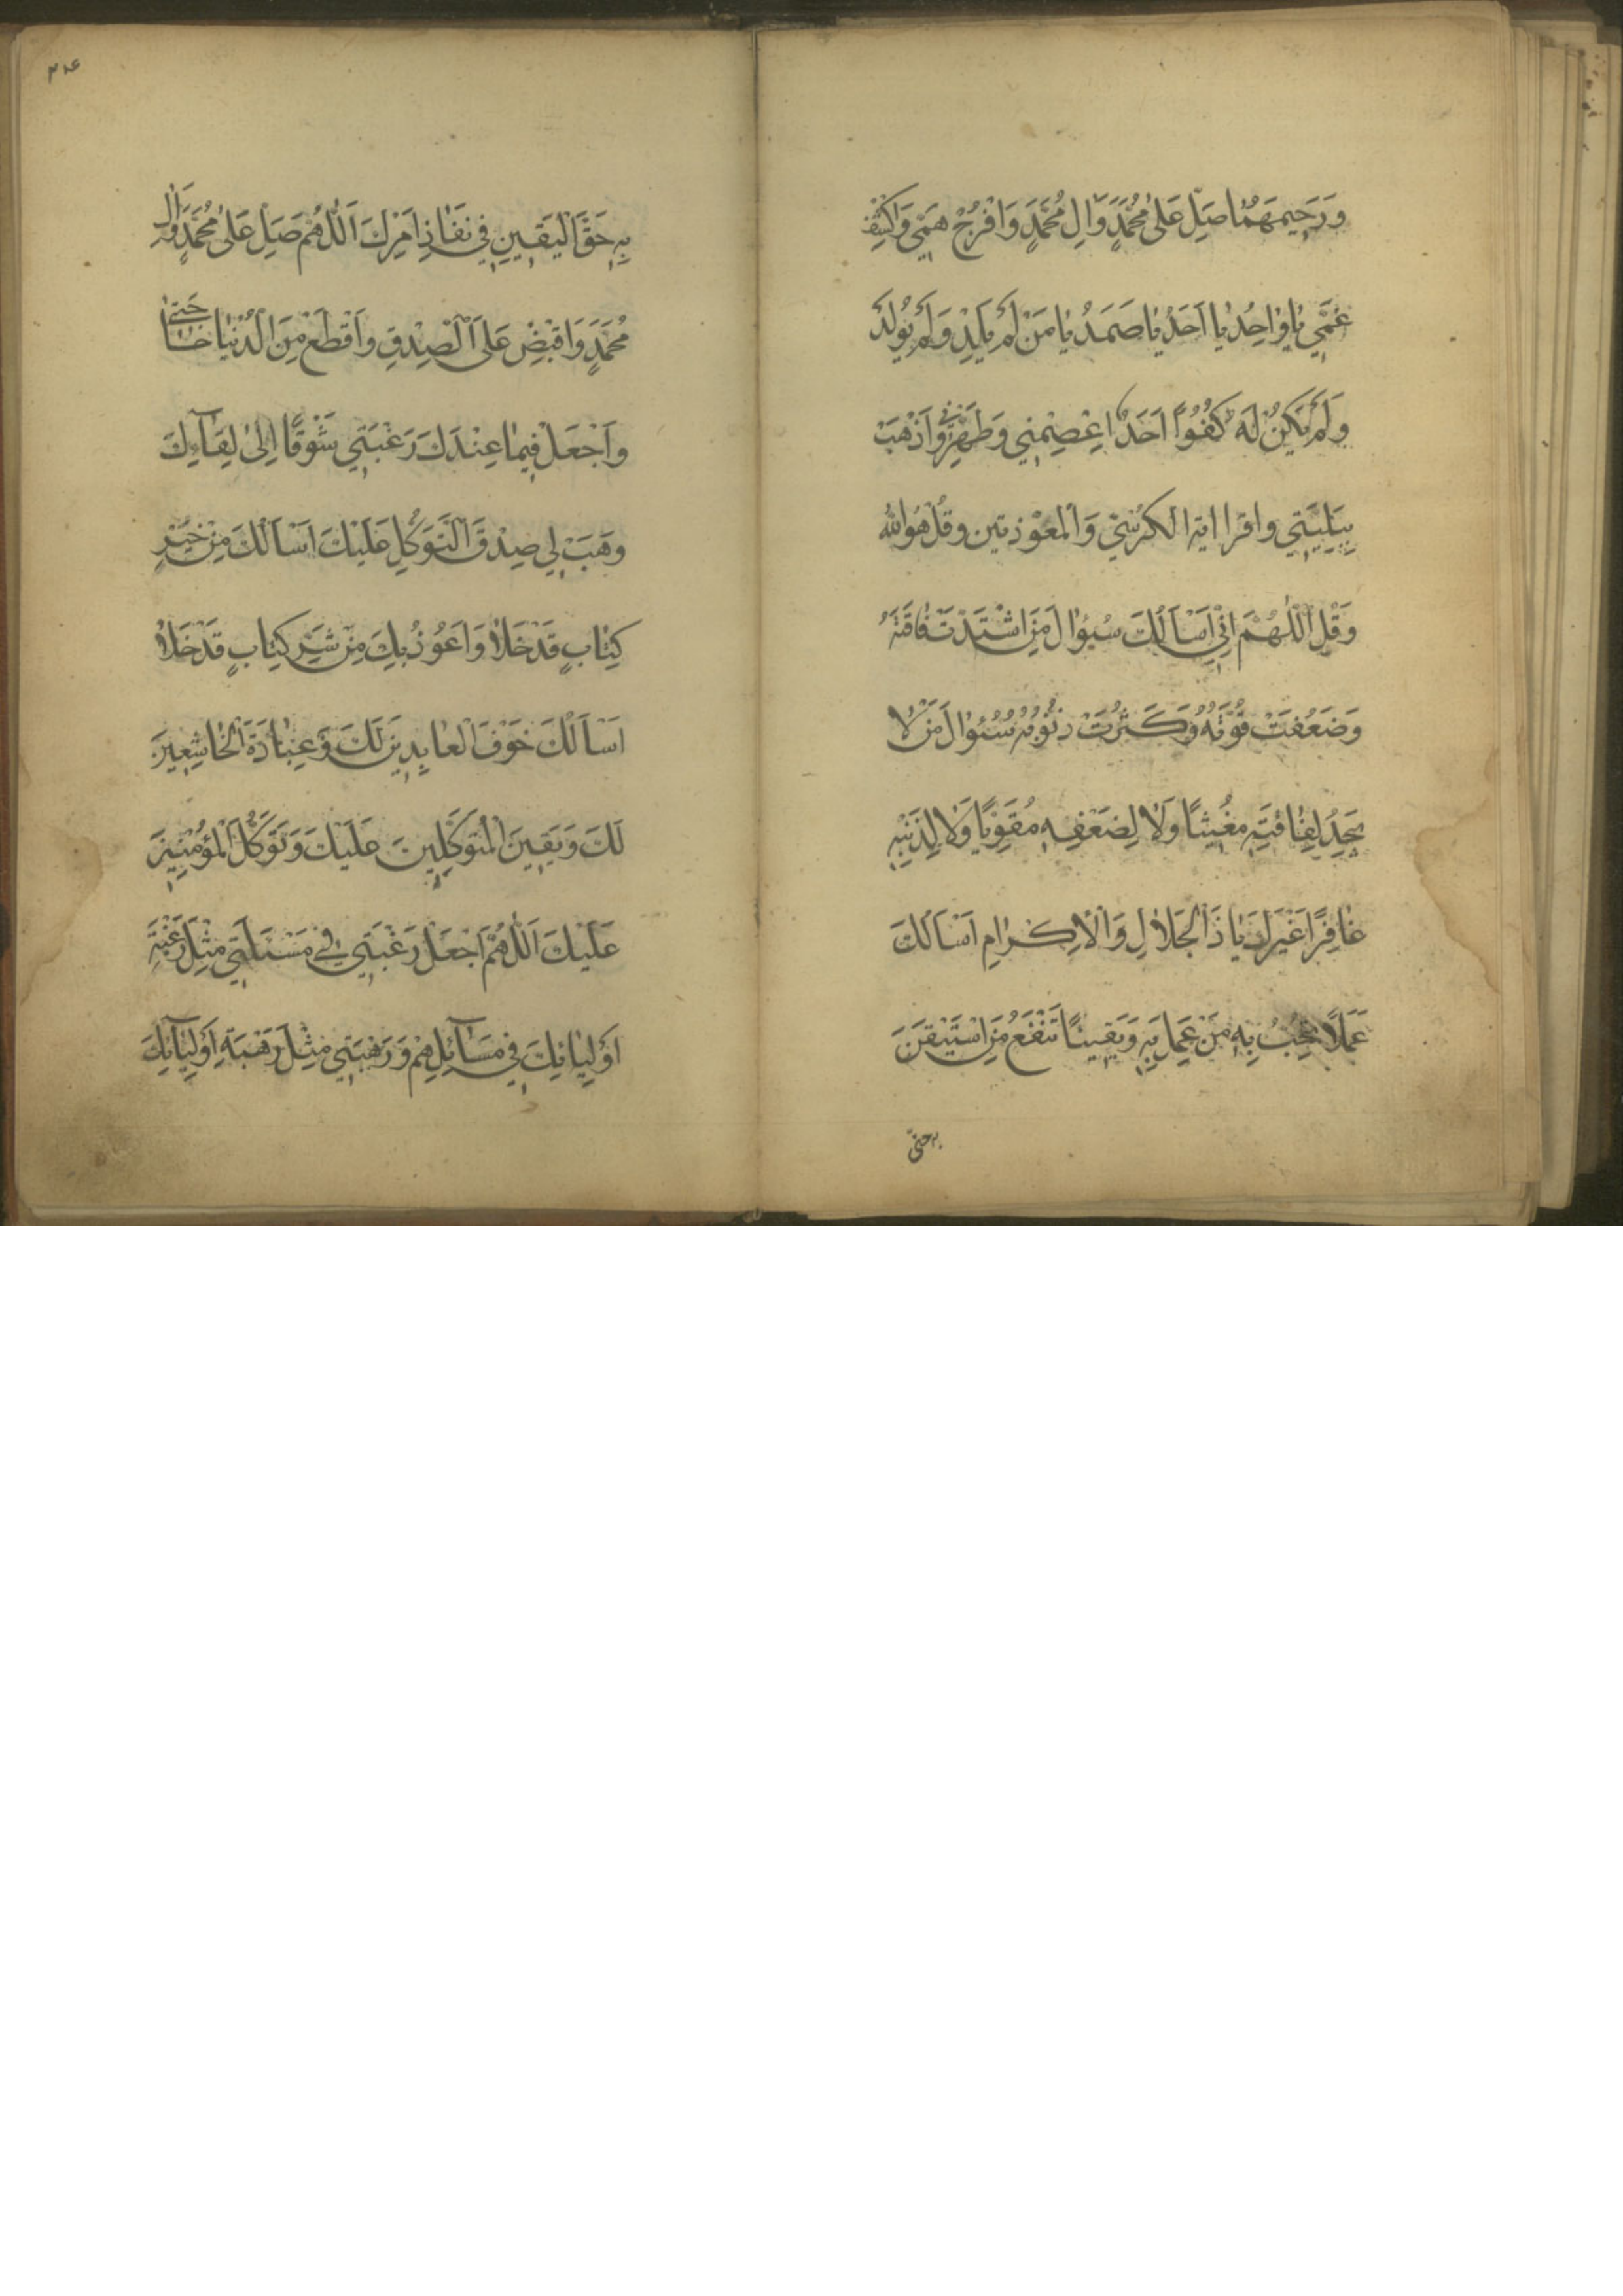 وَرَحِيمَهُمَا صَلِّ عَلَىٰ مُحَمَّدٍ وَاٰلِ مُحَمَّدٍ وَافْرُجْ هَمِّي وَاكْشِفْ
غَمِّي يَا وَاحِدُ يَا اَحَدُ يَا صَمَدُ يَا مَنْ لَمْ يَلِدْ وَلَمْ يُولَدْ
وَلَمْ يَكُنْ لَهُ كُفُوًا اَحَدٌ اعْصِمْنِي وَطَهِّرْنِي وَاذْهَبْ
بِبَلِيَّتِي واقرا اية الكرسي وَالمعوّذتين وقُلْ هُوَ الله
وَقُلِ اللَّهُمَّ اِنِّي اَسْاَلُكَ سُؤَالَ مَنِ اشْتَدَّتْ فَاقَتُهُ
وَضَعُفَتْ قُوَّتُهُ وَكَثُرَتْ ذُنُوبُهُ سُؤَالَ مَنْ لَا
يَجِدُ لِفَاقَتِهِ مُغِيثًا وَلَا لِضَعْفِهِ مُقَوِّيًا وَلَا لِذَنْبِهِ
غَافِرًا غَيْرَكَ يَا ذَا الْجَلَالِ وَالْاِكْرَامِ اَسْاَلُكَ
عَمَلًا تُحِبُّ بِهِ مَنْ عَمِلَ بِهِ وَيَقِينًا تَنْفَعُ مَنِ اسْتَيْقَنَ
به حقّ
بِهِ حَقَّ الْيَقِينِ فِي نَفَاذِ اَمْرِكَ اَللَّهُمَّ صَلِّ عَلَىٰ مُحَمَّدٍ وَاٰلِ
مُحَمَّدٍ وَاقْبِضْ عَلَى الصِّدْقِ وَاقْطَعْ مِنَ الدُّنْيَا حَاجَتِي
وَاجْعَلْ فِيمَا عِنْدَكَ رَغْبَتِي شَوْقًا اِلَىٰ لِقَآئِكَ
وَهَبْ لِي صِدْقَ التَّوَكُّلِ عَلَيْكَ اَسْاَلُكَ مِنْ خَيْرِ
كِتَابٍ قَدْ خَلَا وَاَعُوذُ بِكَ مِنْ شَرِّ كِتَابٍ قَدْ خَلَا
اَسْاَلُكَ خَوْفَ الْعَابِدِينَ لَكَ وَعِبَادَةَ الْخَاشِعِينَ
لَكَ وَيَقِينَ الْمُتَوَكِّلِينَ عَلَيْكَ وَتَوَكُّلَ الْمُؤْمِنِينَ
عَلَيْكَ اَللَّهُمَّ اجْعَلْ رَغْبَتِي فِي مَسْئَلَتِي مِثْلَ رَغْبَةِ
اَوْلِيَائِكَ فِي مَسَآئِلِهِمْ وَرَهْبَتِي مِثْلَ رَهْبَةِ اَوْلِيَآئِكَ